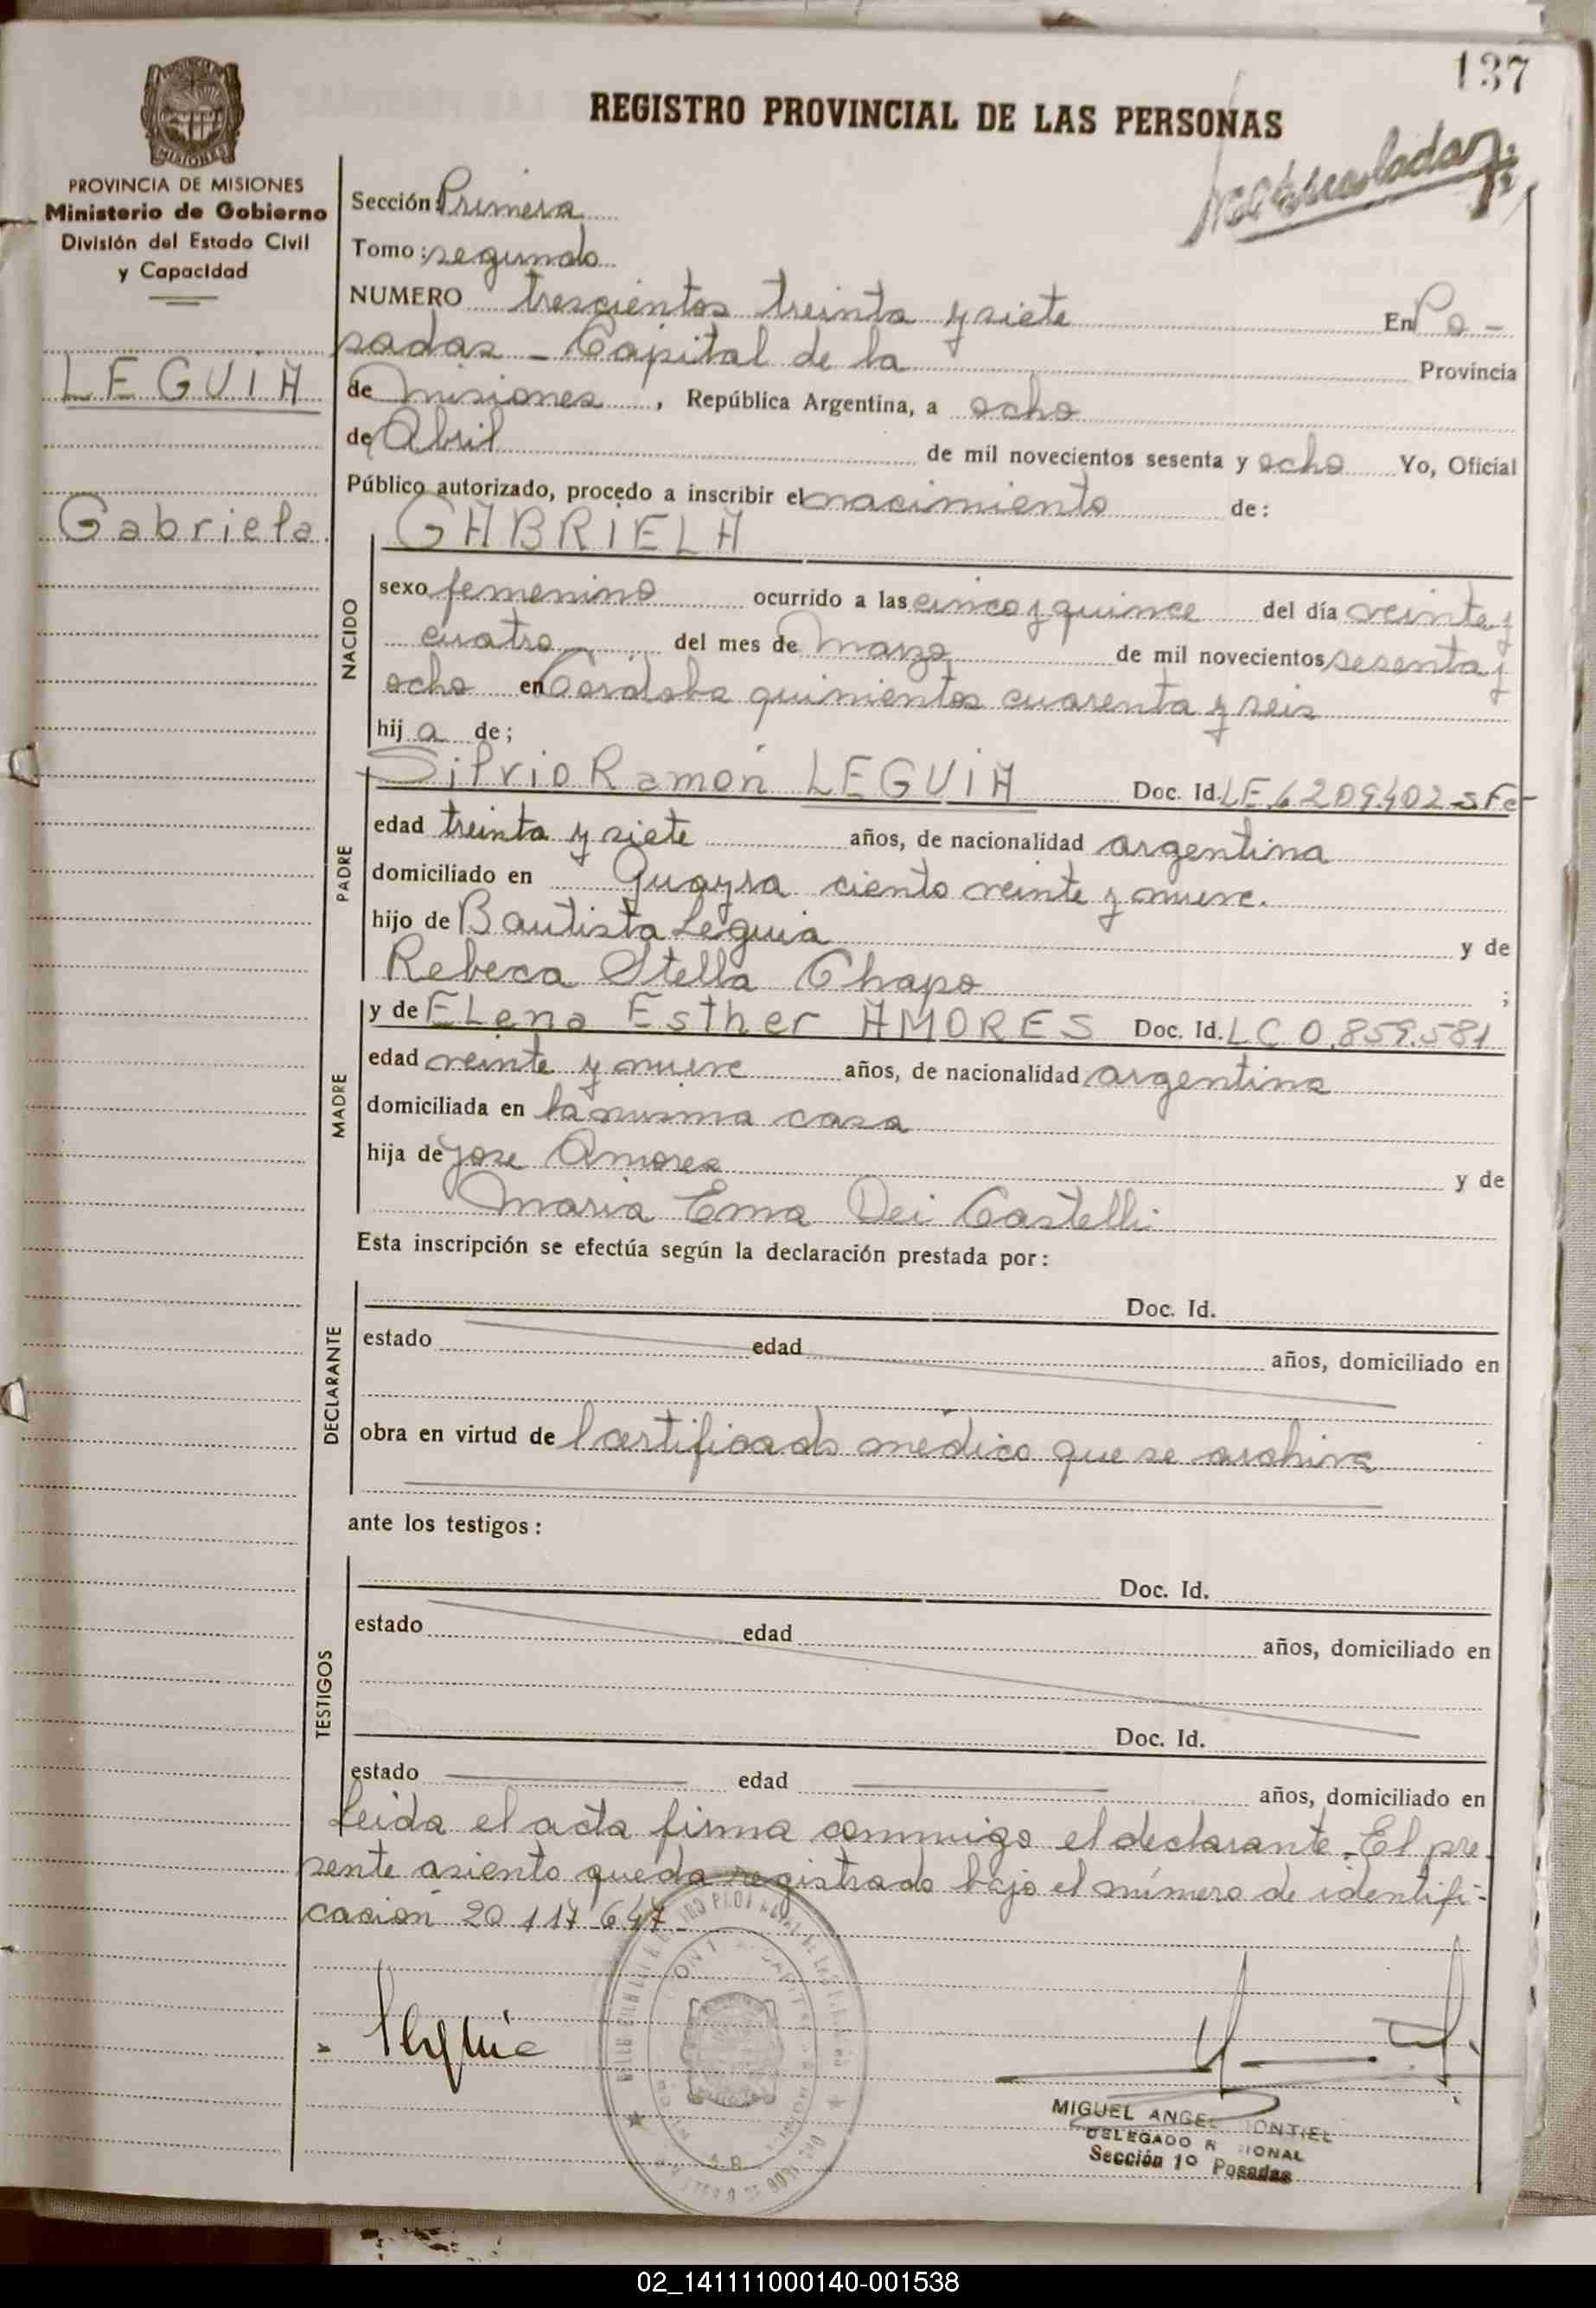 137
REGISTRO PROVINCIAL DE LAS PERSONAS
MISIONES
PROVINCIA DE MISIONES
Ministerio de Gobierno
División del Estado Civil
y Capacidad
LEGUIA
Gabriela
Sección: Primera
Tomo: segundo
NUMERO trescientos treinta y siete En Po-
sadas - Capital de la Provincia
de Misiones, República Argentina, a ocho
de Abril de mil novecientos sesenta y ocho Yo, Oficial
Público autorizado, procedo a inscribir el nacimiento de:
GABRIELA
NACIDO
sexo femenino ocurrido a las cinco y quince del día veinte y
cuatro del mes de Marzo de mil novecientos sesenta y
ocho en Cordoba quinientos cuarenta y seis
hij a de;
Silvio Ramón LEGUIA Doc. Id. LE 6209402 S Fe-
PADRE
edad treinta y siete años, de nacionalidad argentina
domiciliado en Guayra ciento veinte y nueve.
hijo de Bautista Leguia y de
Rebeca Stella Chapo ;
MADRE
y de Elena Esther AMORES Doc. Id. LC 0.859.581
edad veinte y nueve años, de nacionalidad argentina
domiciliada en la misma casa
hija de Jose Amores y de
Maria Ema Dei Castelli
Esta inscripción se efectúa según la declaración prestada por:
DECLARANTE
Doc. Id.
estado edad años, domiciliado en
obra en virtud de l certificado médico que se archiva
ante los testigos:
TESTIGOS
Doc. Id.
estado edad años, domiciliado en
Doc. Id.
estado edad años, domiciliado en
Leida el acta firma conmigo el declarante. El pre-
sente asiento queda registrado bajo el número de identifi-
cación 20.117.647
MIGUEL ANGEL MONTIEL
DELEGADO R IONAL
Sección 1º Posadas
02_141111000140-001538